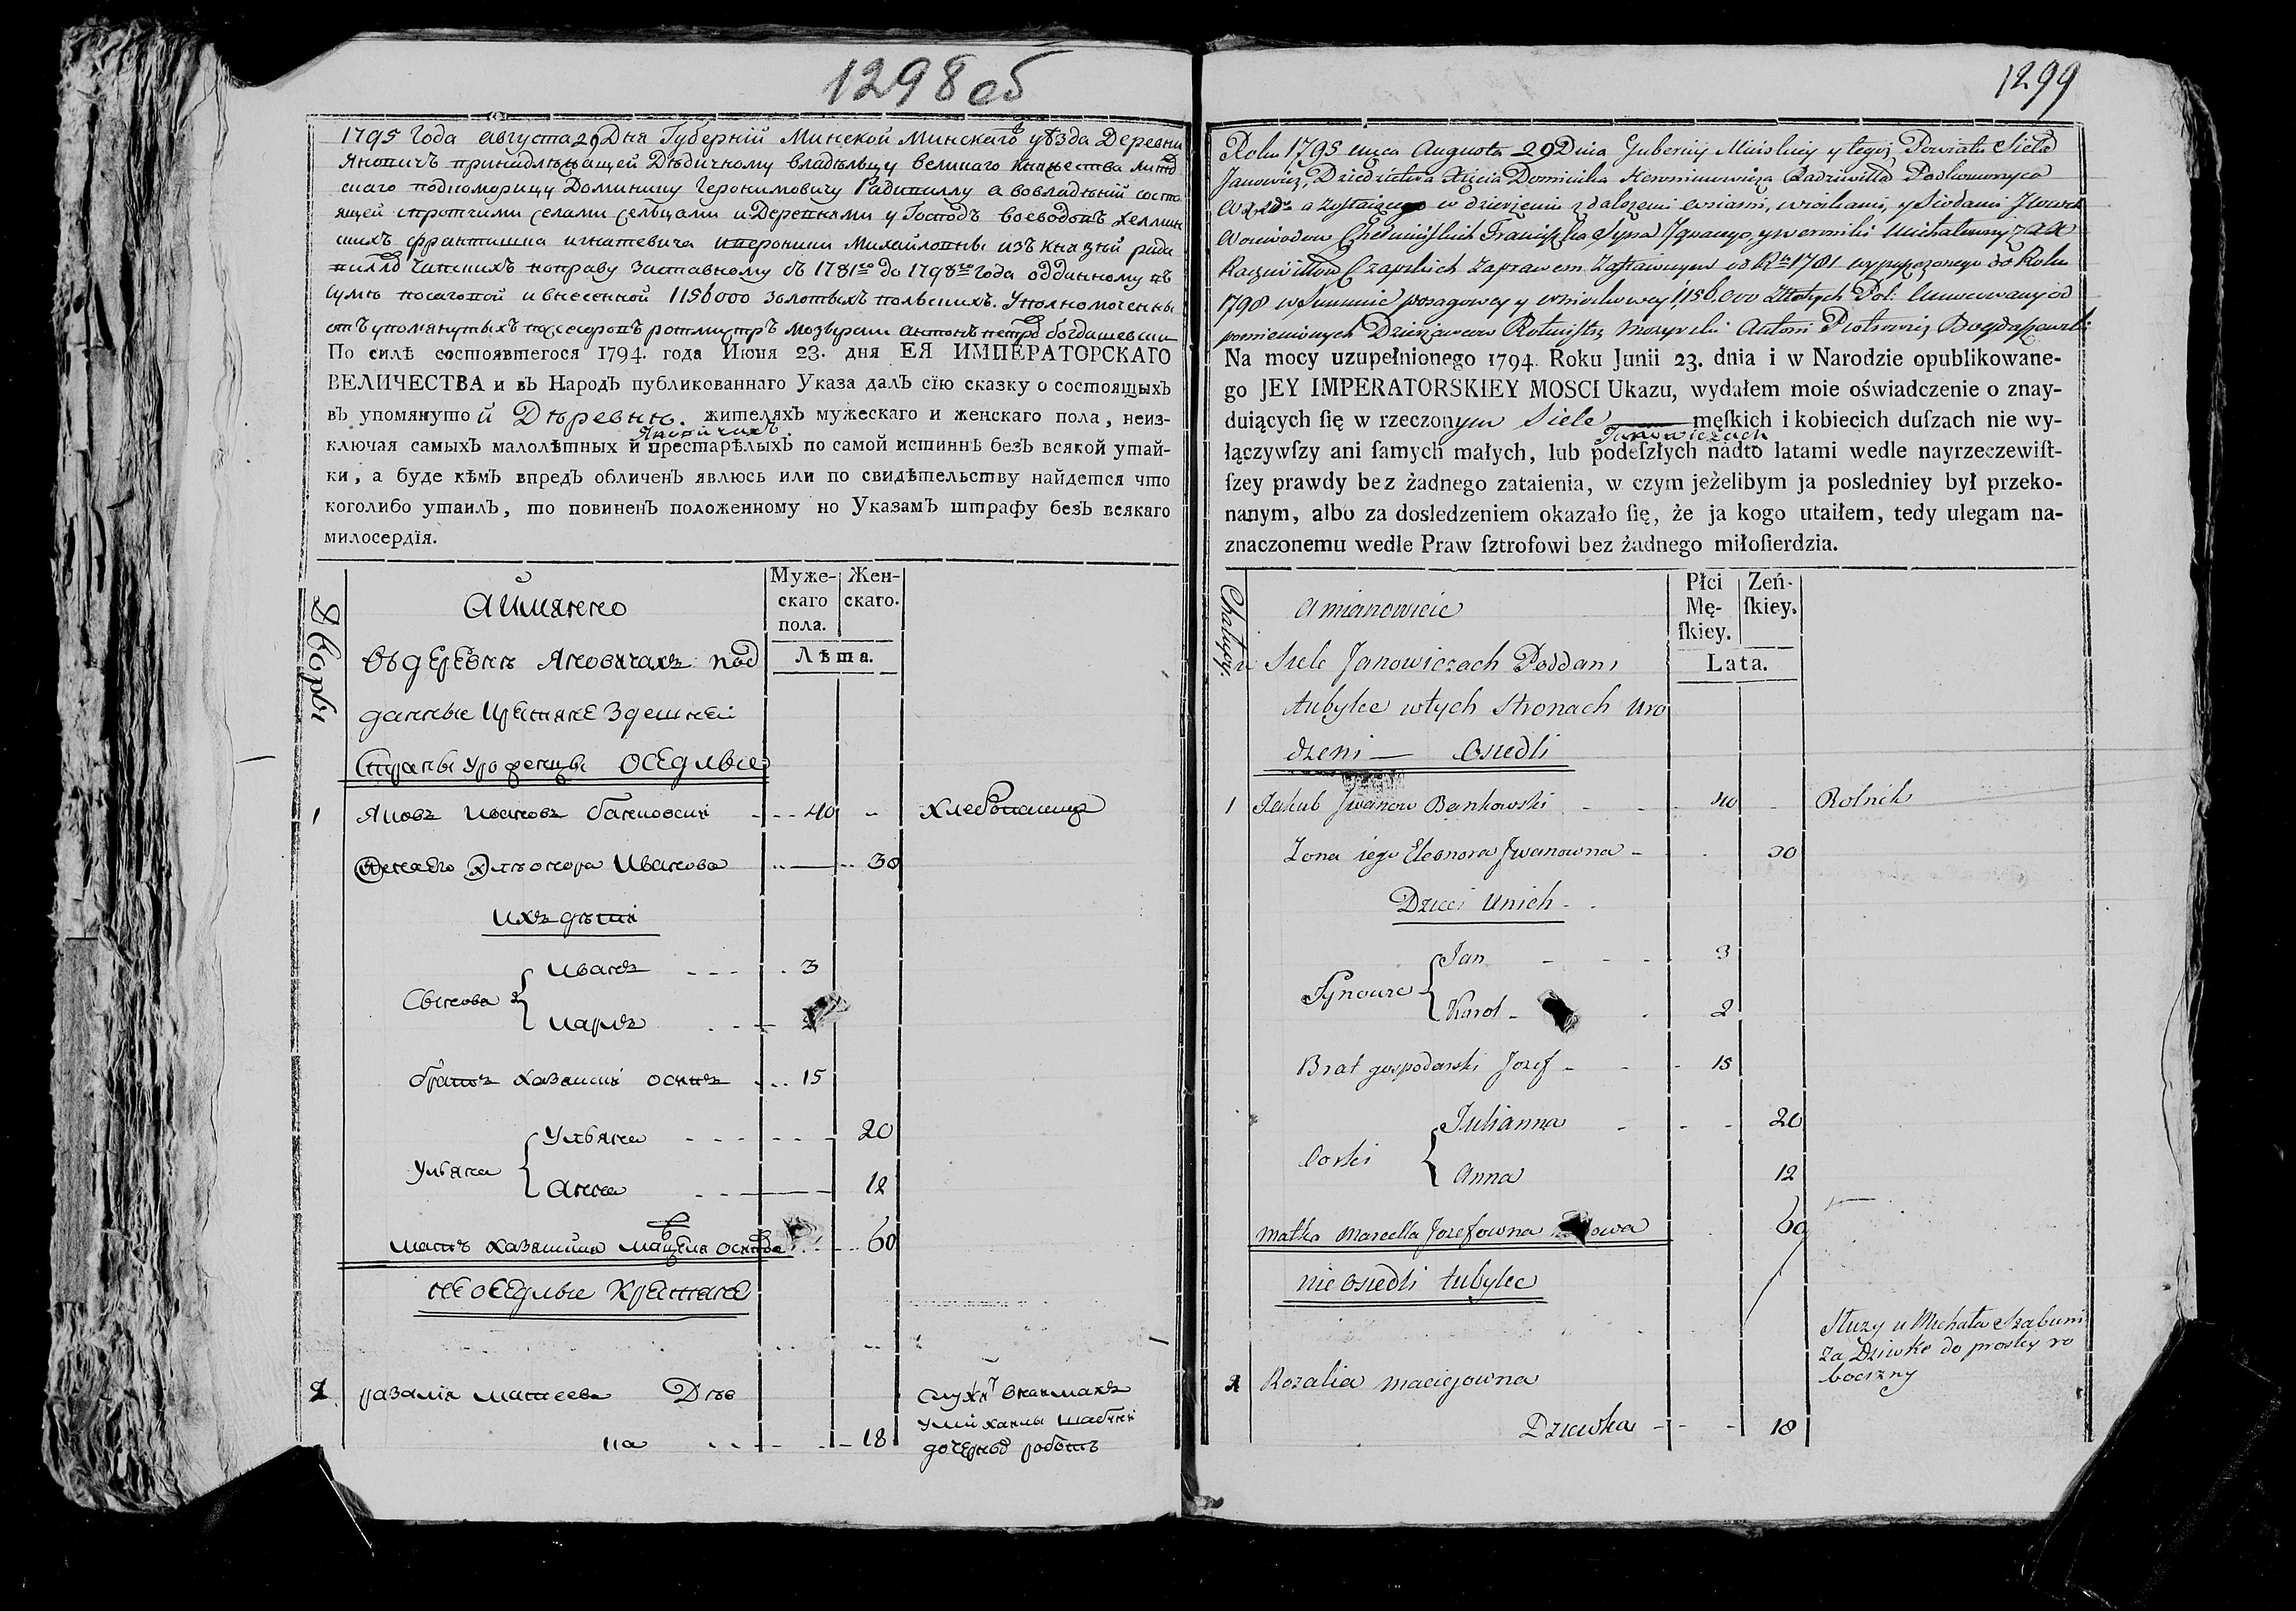 1298 об
1795 года августа 29 Дня Губерній Минской Минскаго уѣзда Деревни
Яновичъ принадлежащей Дѣдичному владѣльцу великаго Княжества Литов
скаго подкоморицу Доминику Геронимовичу Радивиллу а вовладѣній состо
ящей спротчими селами сельцами и Деревнями у Господъ воеводовъ хелмин
скихъ франтишка игнатевича ивероники Михайловны изъ князей ради
вилловъ Чапскихъ поправу заставному съ 1781го до 1798го года одданному въ
сумѣ посаговой и внесенной 1156000 золотыхъ польскихъ. Уполномоченны
отъ упомянутыхъ посесоровъ ротмистръ мозырски антонъ петровъ богдашевски
По силѣ состоявшегося 1794. года Июня 23. дня ЕЯ ИМПЕРАТОРСКАГО
ВЕЛИЧЕСТВА и въ Народъ публикованнаго Указа далъ сїю сказку о состоящыхъ
въ упомянутой Деревнѣ. жителяхъ мужескаго и женскаго пола, неиз-
Яновичахъ
ключая самыхъ малолѣтныхъ и престарѣлыхъ по самой истиннѣ безъ всякой утай-
ки, а буде кѣмъ впредъ обличенъ явлюсь или по свидѣтельству найдется что
коголибо утаилъ, то повиненъ положенному по Указамъ штрафу безъ всякаго
милосердїя.
Дворы
Аймянно
Муже-
скаго
пола.
Жен-
скаго.
Лѣта.
въ деревнѣ Яновичахъ под
данные крестяне здешней
страны уроженцы оседлые
1 Яковъ Ивановъ банковски - - - 40 - хлебопашецъ
Жена его Элеонора Иванова - - 30
Ихъ дѣти
Сынова { Иванъ - - - 3
Карлъ - - -
братъ хазяйски осипъ - - - 15
Ульяна { Ульяна - - - 20
Анна - - - 12
мать хазяйска осипова - - - 60
неоседлые крестяне
2 разалія матеева Дѣв
ка - - - 18
дочерной роботъ
1299
Roku 1795 mca Augusta 29 Dnia Gubernij Minskiey y tegoż Powiatu Sieła
Janowicz, Dziedzictwa Xięcia Dominika Heronimowicza Radziwiłła Podkomorzyca
a zostaiącego w dzierżeniu z dalszemi wsiami, wioskami, y Siołami
Woiewodow Chełminskich Franciszka Syna Jgnacego, y weroniki Michałowny z XX
Radziwiłłow Czapskich zaprawem Zastawnym od Rku 1781 wypuszczonego do Roku
1798 w Summie posagowey y wnioskowey 1,156,000 Złłotych Pol: Umocowany od
pomienionych Dzierżawcow Rotmistrz mozyrski Antoni Piotrowicz Bogdaszewski
Na mocy uzupełnionego 1794. Roku Junii 23. dnia i w Narodzie opublikowane-
go JEY IMPERATORSKIEY MOSCI Ukazu, wydałem moie oświadczenie o znay-
duiących ſię w rzeczonym Siele męſkich i kobiecich duſzach nie wy-
Janowiczach
łączywſzy ani ſamych małych, lub podeſzłych nadto latami wedle nayrzeczewiſt-
ſzey prawdy bez żadnego zataienia, w czym jeżelibym ja posledniey był przeko-
nanym, albo za dosledzeniem okazało ſię, że ja kogo utaiłem, tedy ulegam na-
znaczonemu wedle Praw ſztrofowi bez żadnego miłoſierdzia.
Chałupy.
amianowicie
Płci
Mę-
ſkiey.
Zeń-
ſkiey.
Lata.
w Siele Janowiczach Poddani
tubylce wtych stronach uro
dzeni — Osiedli
1 Jakub Jwanow Bankowski - - - 40 - Rolnik
Zona iego Eleonora Jwanowna - - 30
Dzieci Unich - -
Synowie { Jan - - - 3
Karol - - 2
Brat gospodarski Jozef - - - 15
Corki { Julianna - - - 20
Anna 12
Matka Marcella Jozefowna 60
nie Osiedli tubylce
Służy u Michała Szabuni
za Dziwkę do prostey ro
boczny
2 Rozalia Maciejowna
Dziewka - - - 18